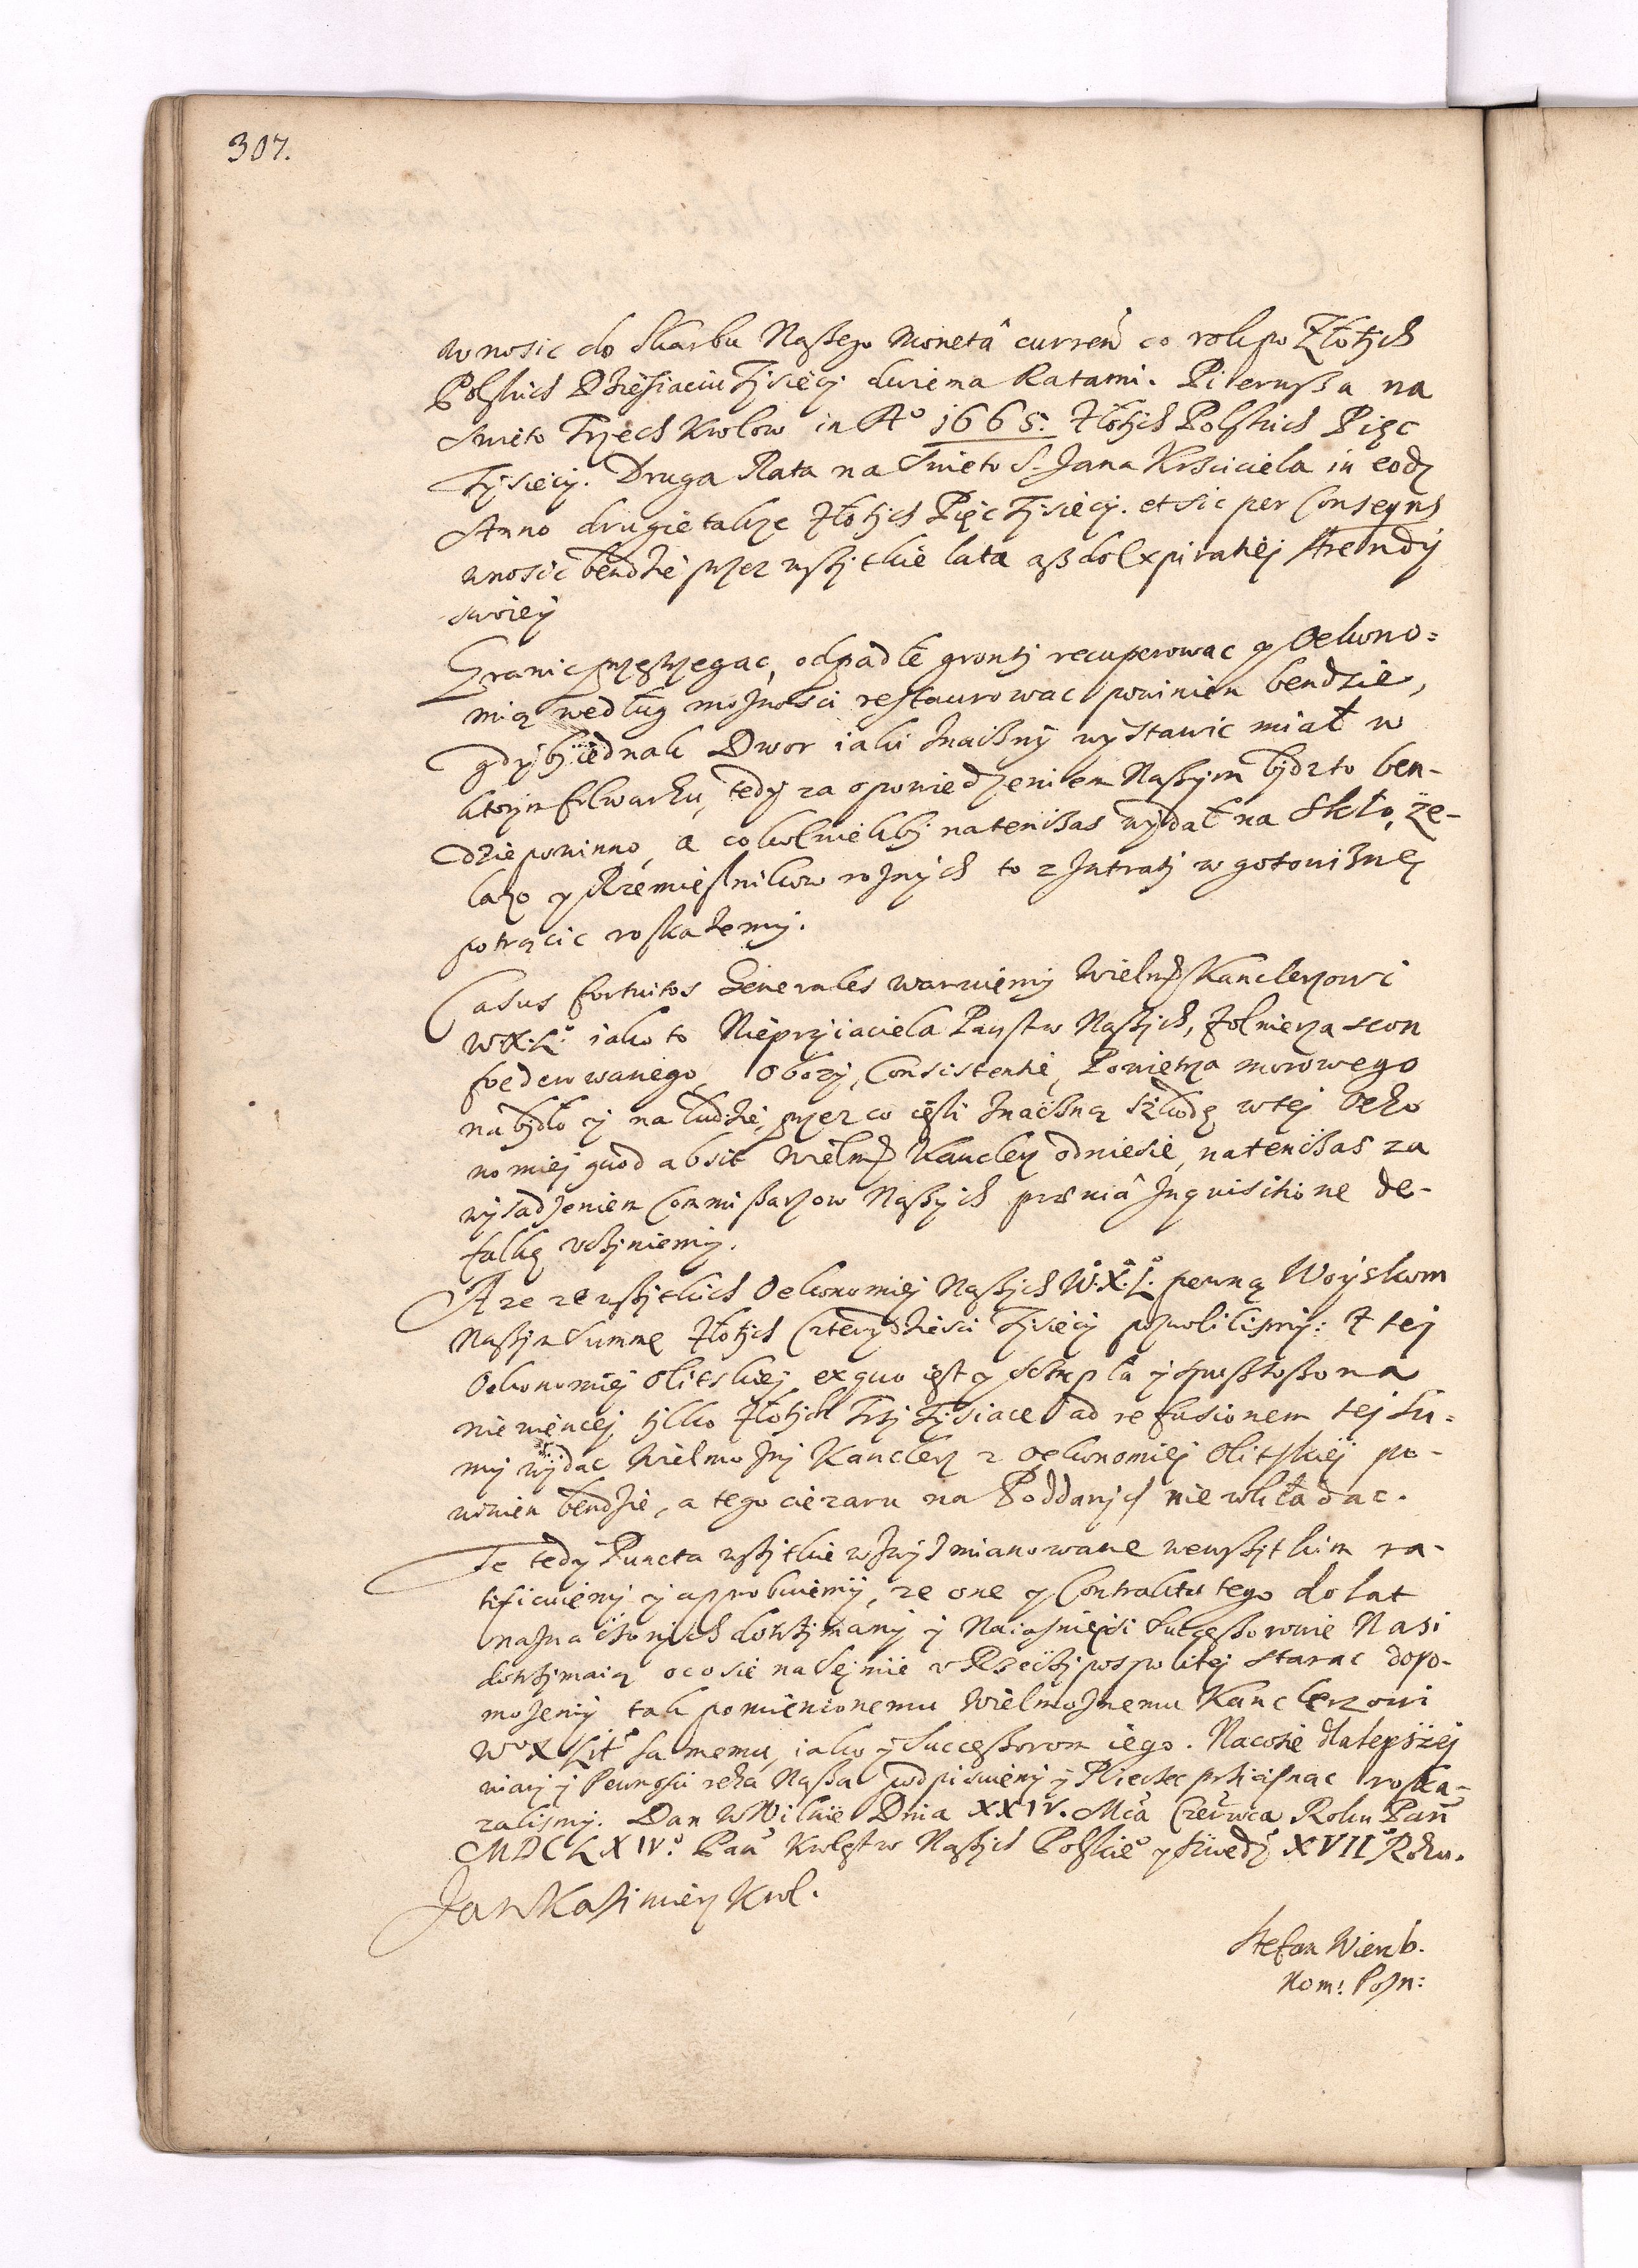 307.
wnosic do Skarbu Naßego Monetâ curreñ co rok po Złotych
Polskich Dziesiąciu Tysięcy dwiema Ratami. Pierwßa na
Swieto Trzech Krolow in Aº 1665. Złotych Polskich Pięc
Tysięcy. Druga Rata na Swieto S. Jana Krzciciela in eodz
Anno drugie takze Złotych Pięc Tysięcy. et sic per Conseqñs
wnosic bendzie przez wßytkie lata aß do Expiratiej Arendy
swoiey
Granic przestrzegac, odpadłe gronty recuperowac y Oekono=
mią według możnosci restaurowac powinien bendzie,
gdyby iednak Dwor iaki znaczny wystawic miał w
ktorym folwarku, tedy za opowiedzeniem Naßym bydz to ben-
dzie powinno, a cokolwiekby natenczas wydał na Skło, że-
lazo y Rzemieslnikow roznych to z Intraty w gotowiznę
potrącic roskażemy.
Casus fortuitos Generales waruiemy Wielmż Kanclerzowi
W.X.L. iako to Nieprzyiaciela Panstw Naßych, żołnierza scon
foederowanego, Obozy, Consistentie, Powietrza morowego
na bydło y na ludzie, przez co ięsli znaczną szkodę w tej Oeko
nomiej quod absit Wielmż Kanclerz odniesie, natenczas za
wysadzeniem Commißarzow Naßych præviâ Inquisitione de-
falkę uczyniemy.
A ze ze wßytkich Oekonomiej Naßych W.X.L. pewną Woyskom
Naßym Summę Złotych Czterydziesci Tysięcy pozwolilismy: Z tej
Oekonomiej Olitskiej, ex quo iest y Sczupła y spustoßona
nie więncej tylko Złotych Trzy Tysiące ad refusionem tej Su=
my wydac Wielmożny Kanclerz z Oekonomiej Olitskiej po-
winien bendzie, a tego ciezaru na Poddanych nie wkładac.
Te tedy Puncta wßytkie wzwyż mianowane we wßytkim ra-
tificuiemy y approbuiemy, ze one y Contraktu tego do lat
naznaczonych dotrzymamy y Naiasnieysi Succeßorowie Nasi
dotrzymaią o co sie na Sejmie u Rzeczypospolitej starac dopo-
możemy tak pomienionemu Wielmożnemu Kanclerzowi
Wº X Lit samemu, iako y Succeßorom iego. Na cosie dla lepszej
wiary y Pewnosci ręką Naßą podpisuiemy y Pieczec przycisnac roska-
zalismy. Dan w Wilnie Dnia XXIV. Mca Czerwca Roku Pañ
MDCLXIVº. Pañ Krolestw Naßych Polskieº y Szwedzº XVII Roku.
Jan Kazimierz Krol.
Stefan Wierzb.
Nom: Pozn: